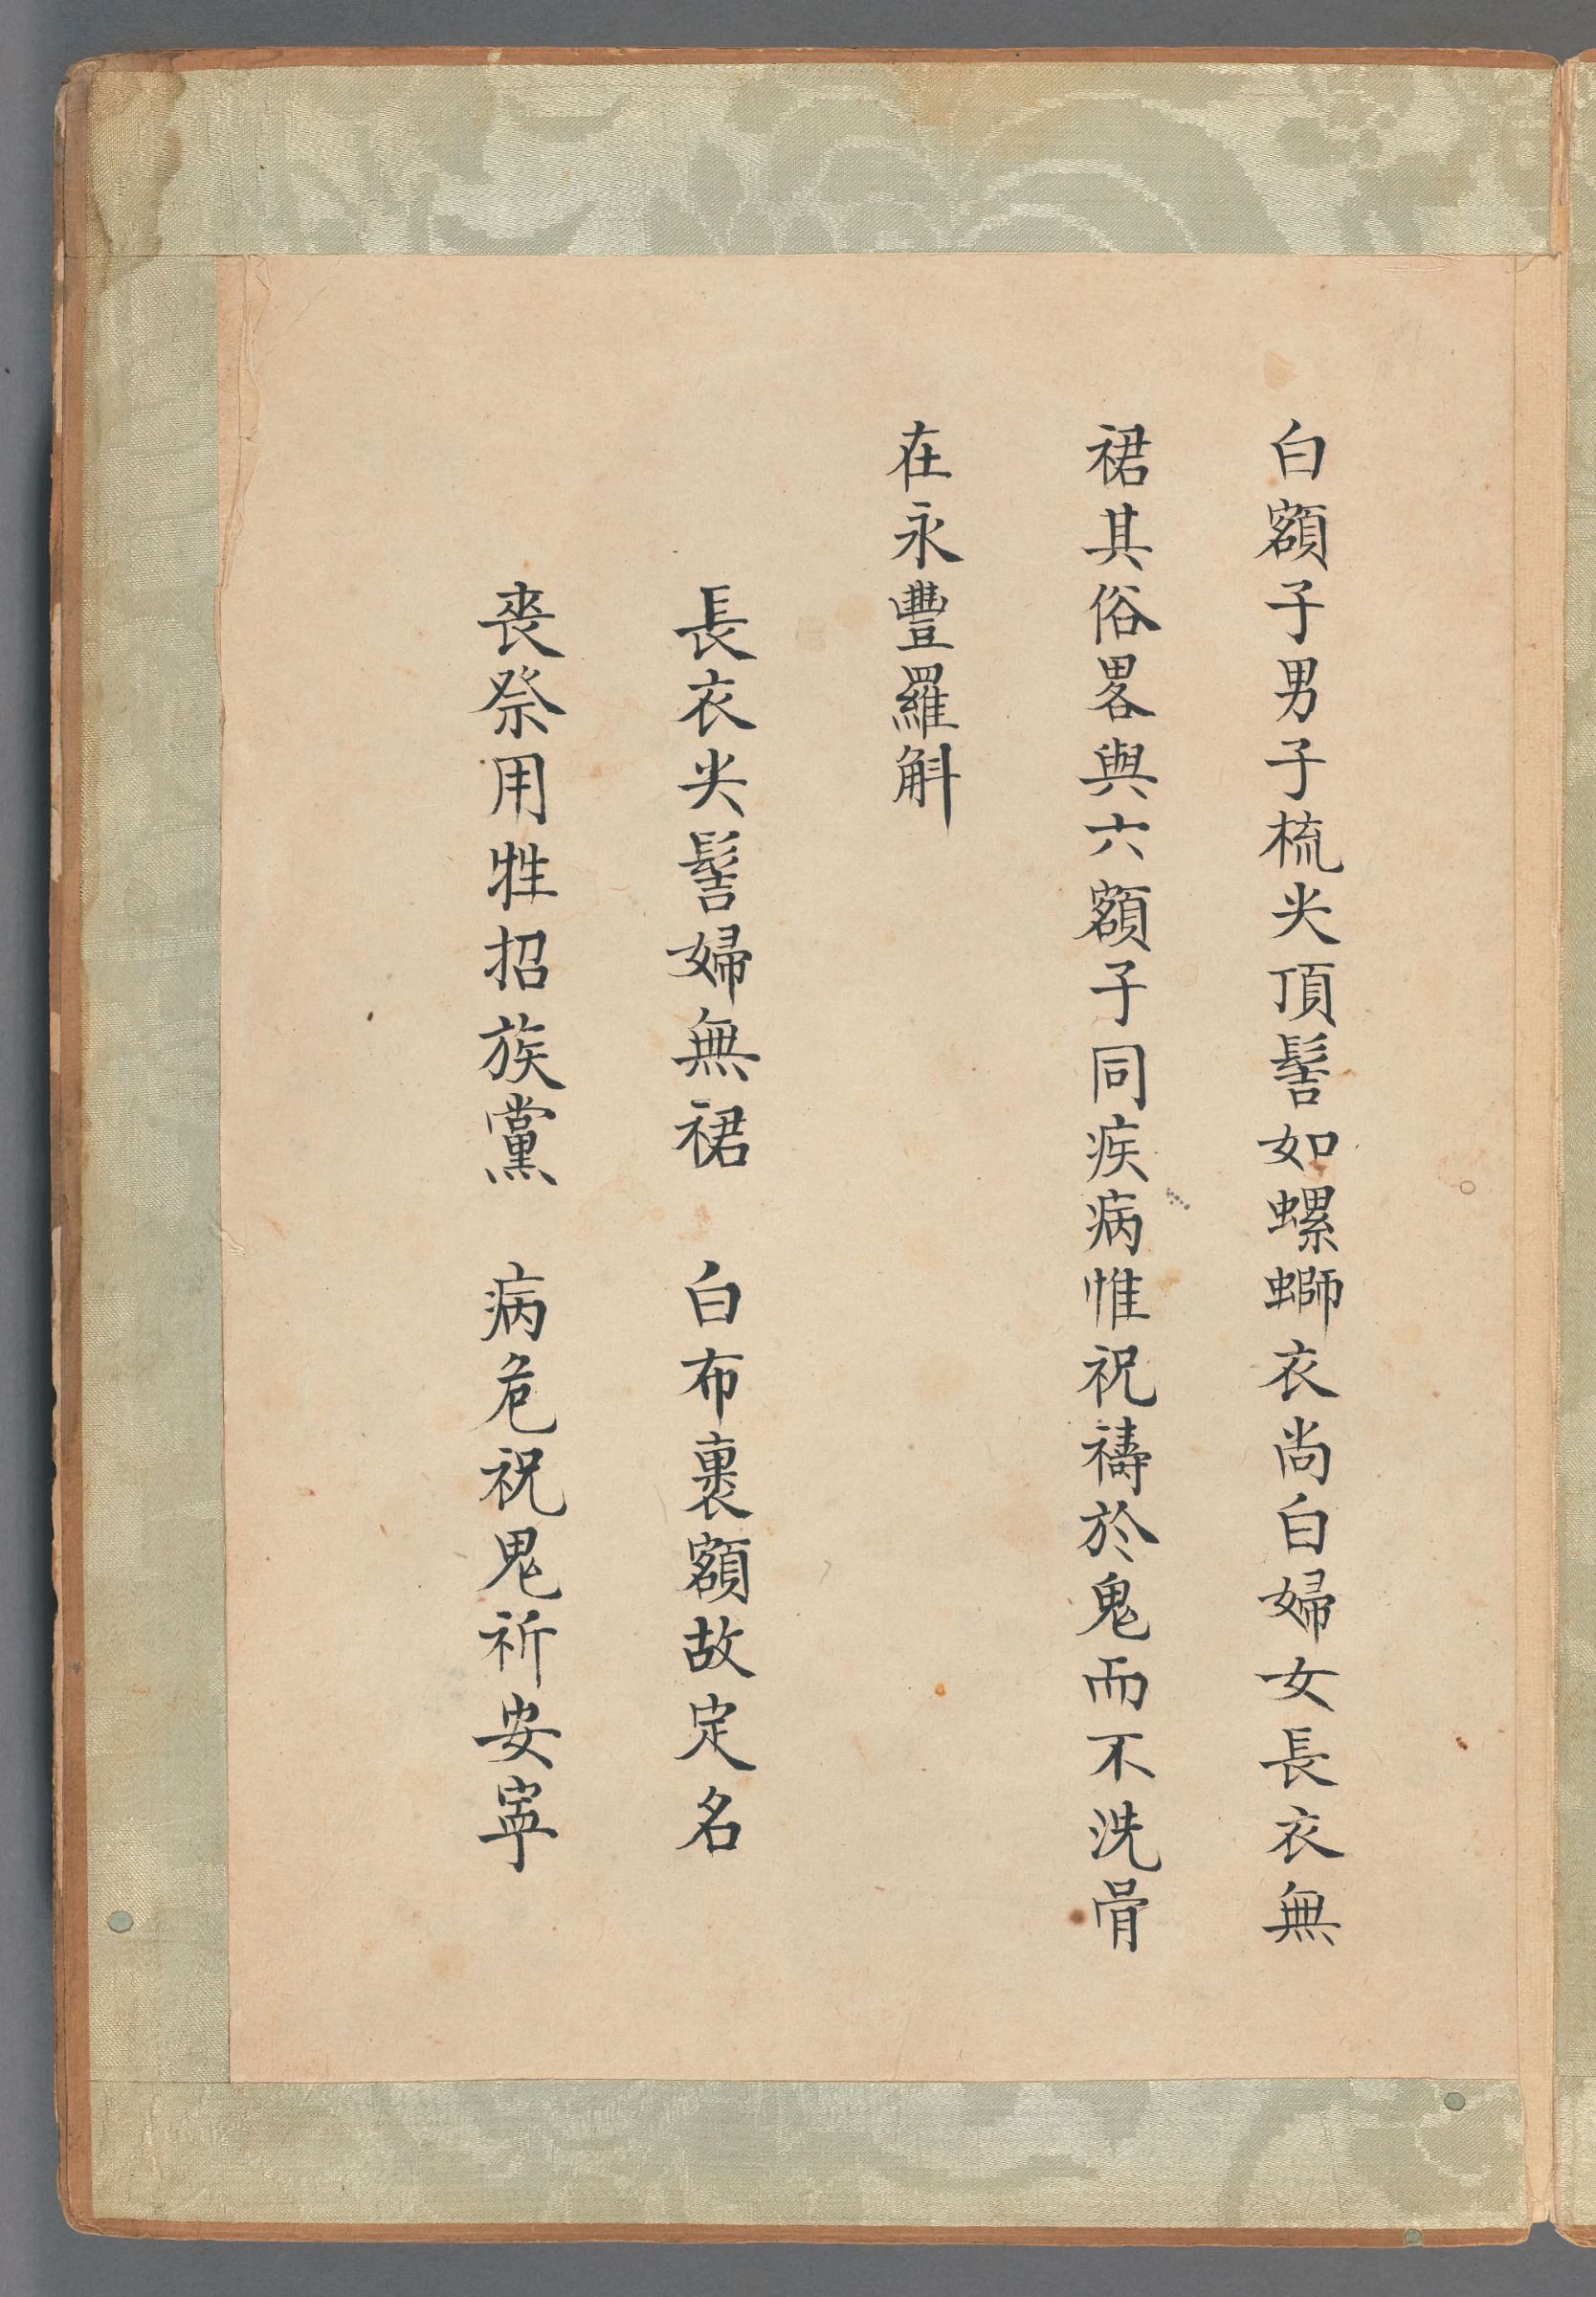 白額子男子梳尖頂髻如螺螄衣尚白婦女長衣無
裙其俗畧與六額子同疾病惟祝禱於鬼而不洗骨
在永豐羅斛
長衣尖髻婦無裙　白布裹額故定名
喪祭用牲招族黨　病危祝鬼祈安寧